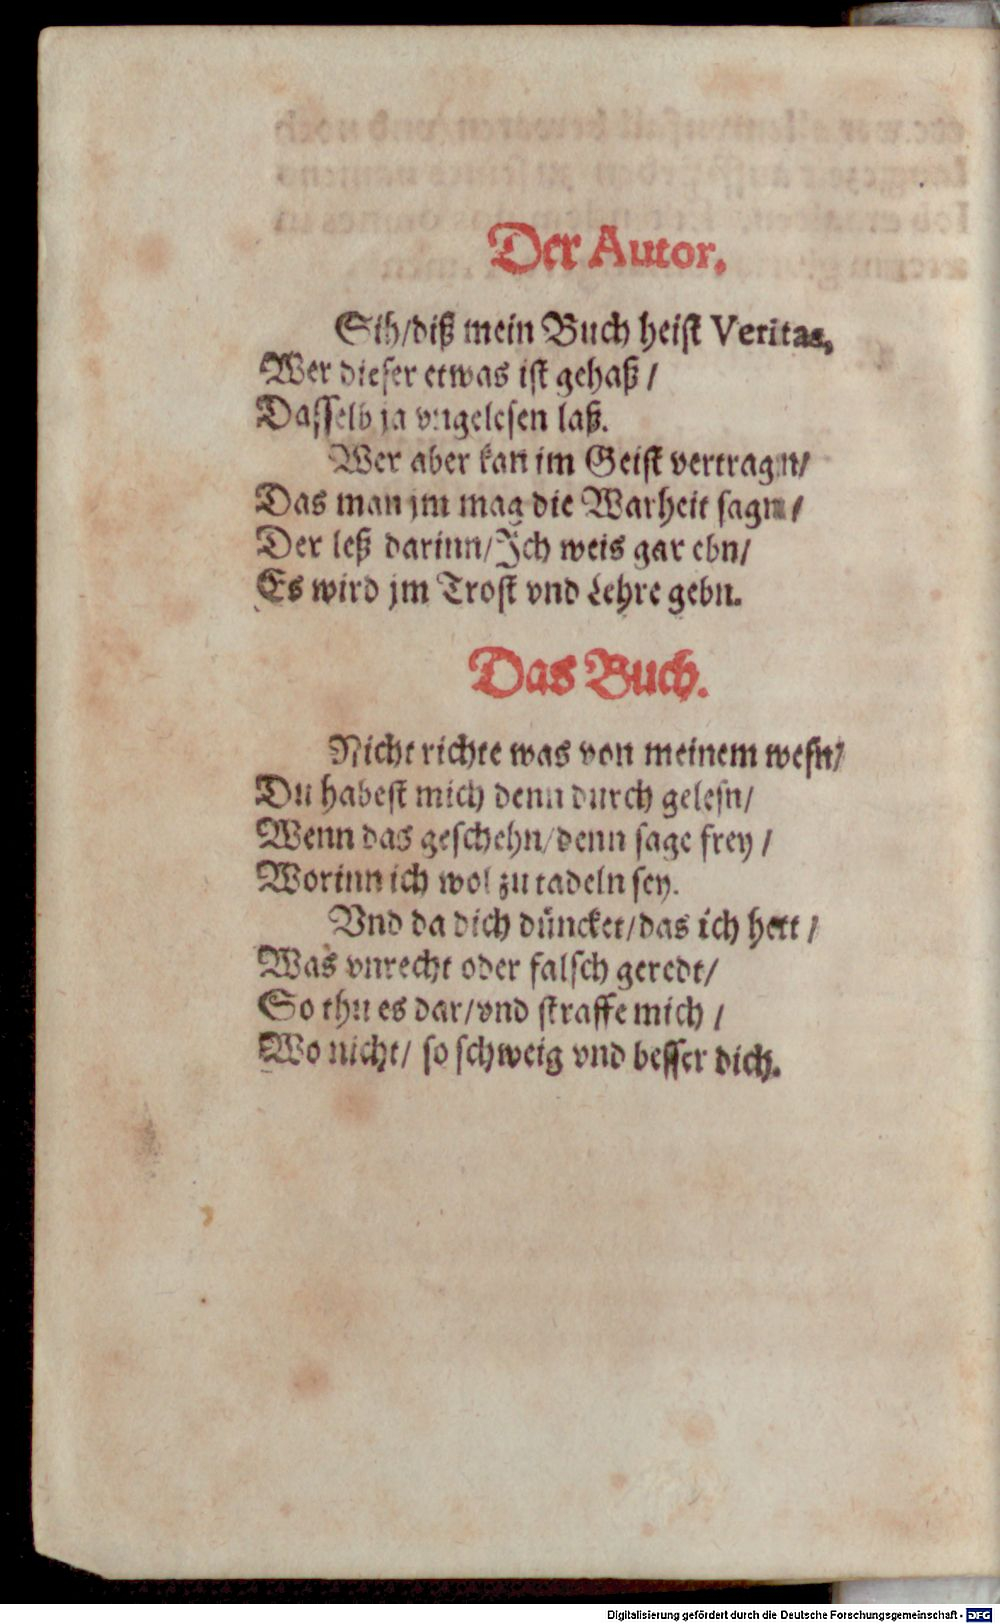 Der Autor.
Sih/diß mein Buch heist Veritas,
Wer dieser etwas ist gehaß /
Dasselb ja vngelesen laß.
Wer aber kan im Geist vertragn/
Das man jm mag die Warheit sagn /
Der leß darinn/Ich weis gar ebn/
Es wird jm Trost vnd Lehre gebn.
Das Buch.
Nicht richte was von meinem wesn/
Du habest mich denn durch gelesn/
Wenn das geschehn/denn sage frey /
Worinn ich wol zu tadeln sey.
Vnd da dich düncket/das ich hett /
Was vnrecht oder falsch geredt/
So thu es dar/vnd straffe mich /
Wo nicht/ so schweig vnd besser dich.
Digitalisierung gefördert durch die Deutsche Forschungsgemeinschaft - DFG